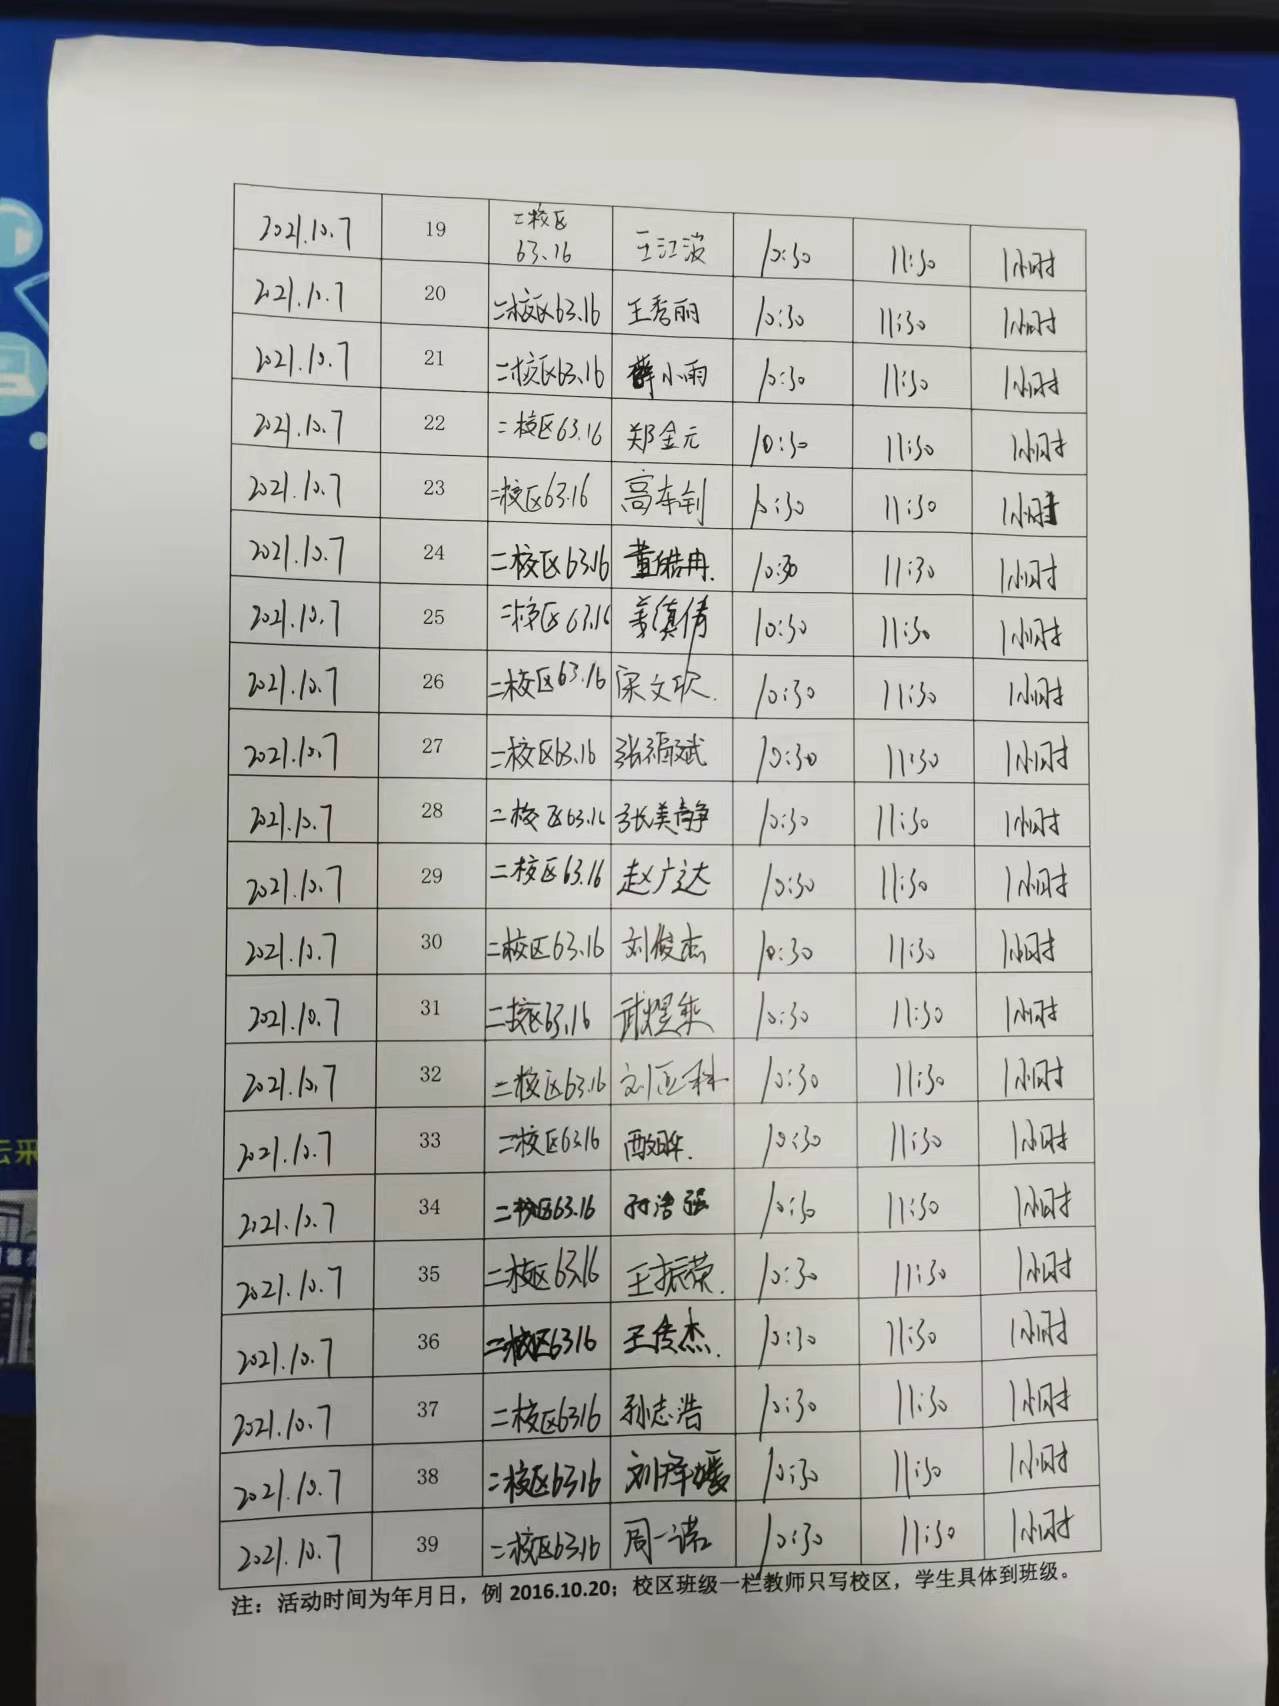 2021.10.7 19 二校区 63.16 王江波 10:30 11:30 1小时
2021.10.7 20 二校区63.16 王秀丽 10:30 11:30 1小时
2021.10.7 21 二校区63.16 薛小雨 10:30 11:30 1小时
2021.10.7 22 二校区63.16 郑金元 10:30 11:30 1小时
2021.10.7 23 二校区63.16 高东钊 10:30 11:30 1小时
2021.10.7 24 二校区63.16 董皓冉. 10:30 11:30 1小时
2021.10.7 25 二校区63.16 10:30 11:30 1小时
2021.10.7 26 二校区63.16 宋文欣. 10:30 11:30 1小时
2021.10.7 27 二校区63.16 张福斌 10:30 11:30 1小时
2021.10.7 28 二校区63.16 张美静 10:30 11:30 1小时
2021.10.7 29 二校区63.16 赵广达 10:30 11:30 1小时
2021.10.7 30 二校区63.16 刘俊杰 10:30 11:30 1小时
2021.10.7 31 二校区63.16 10:30 11:30 1小时
2021.10.7 32 二校区63.16 10:30 11:30 1小时
2021.10.7 33 二校区63.16 10:30 11:30 1小时
2021.10.7 34 二校区63.16 孙浩强 10:30 11:30 1小时
2021.10.7 35 二校区63.16 王振荣. 10:30 11:30 1小时
2021.10.7 36 二校区6316 王俊杰. 10:30 11:30 1小时
2021.10.7 37 二校区6316 孙志浩 10:30 11:30 1小时
2021.10.7 38 二校区6316 刘泽媛 10:30 11:30 1小时
2021.10.7 39 二校区63.16 周一诺 10:30 11:30 1小时
注：活动时间为年月日，例 2016.10.20；校区班级一栏教师只写校区，学生具体到班级。